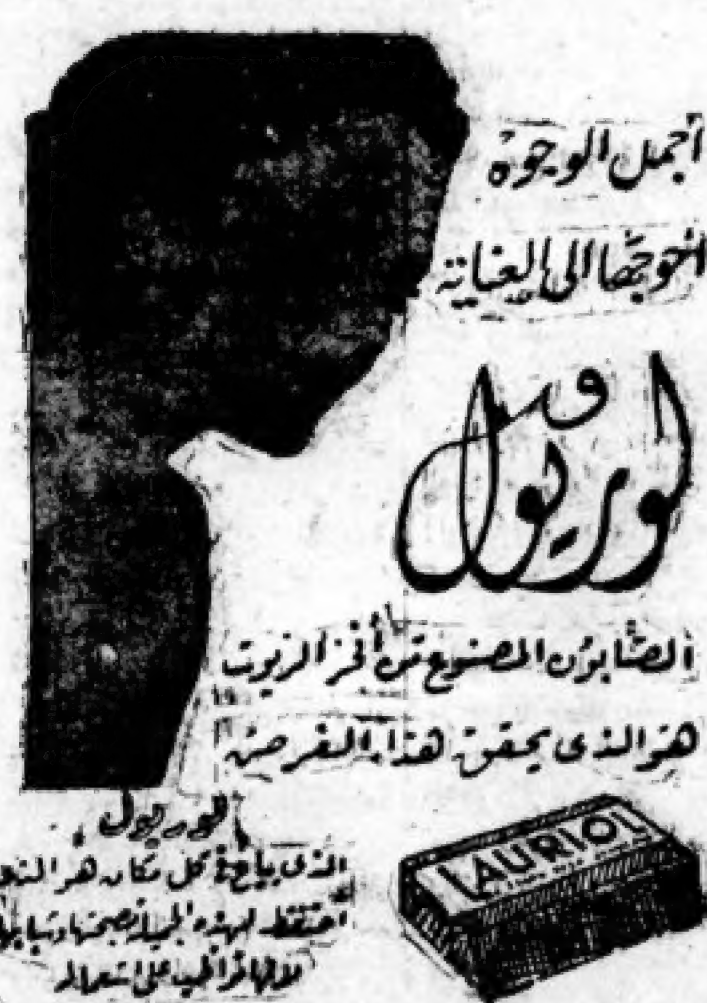 أجمل الوجوه
أحوجها الى العناية
لوريول
الصابون المصنوع من أفخر الزيوت
هو الذى يحقق هذا الغرض
لوريول
الذى يباع فى كل مكان هو الذى
احتفظ لهذه الجميلة بصحتها وشبابها
لأنها تواظب على استعماله
LAURIOL